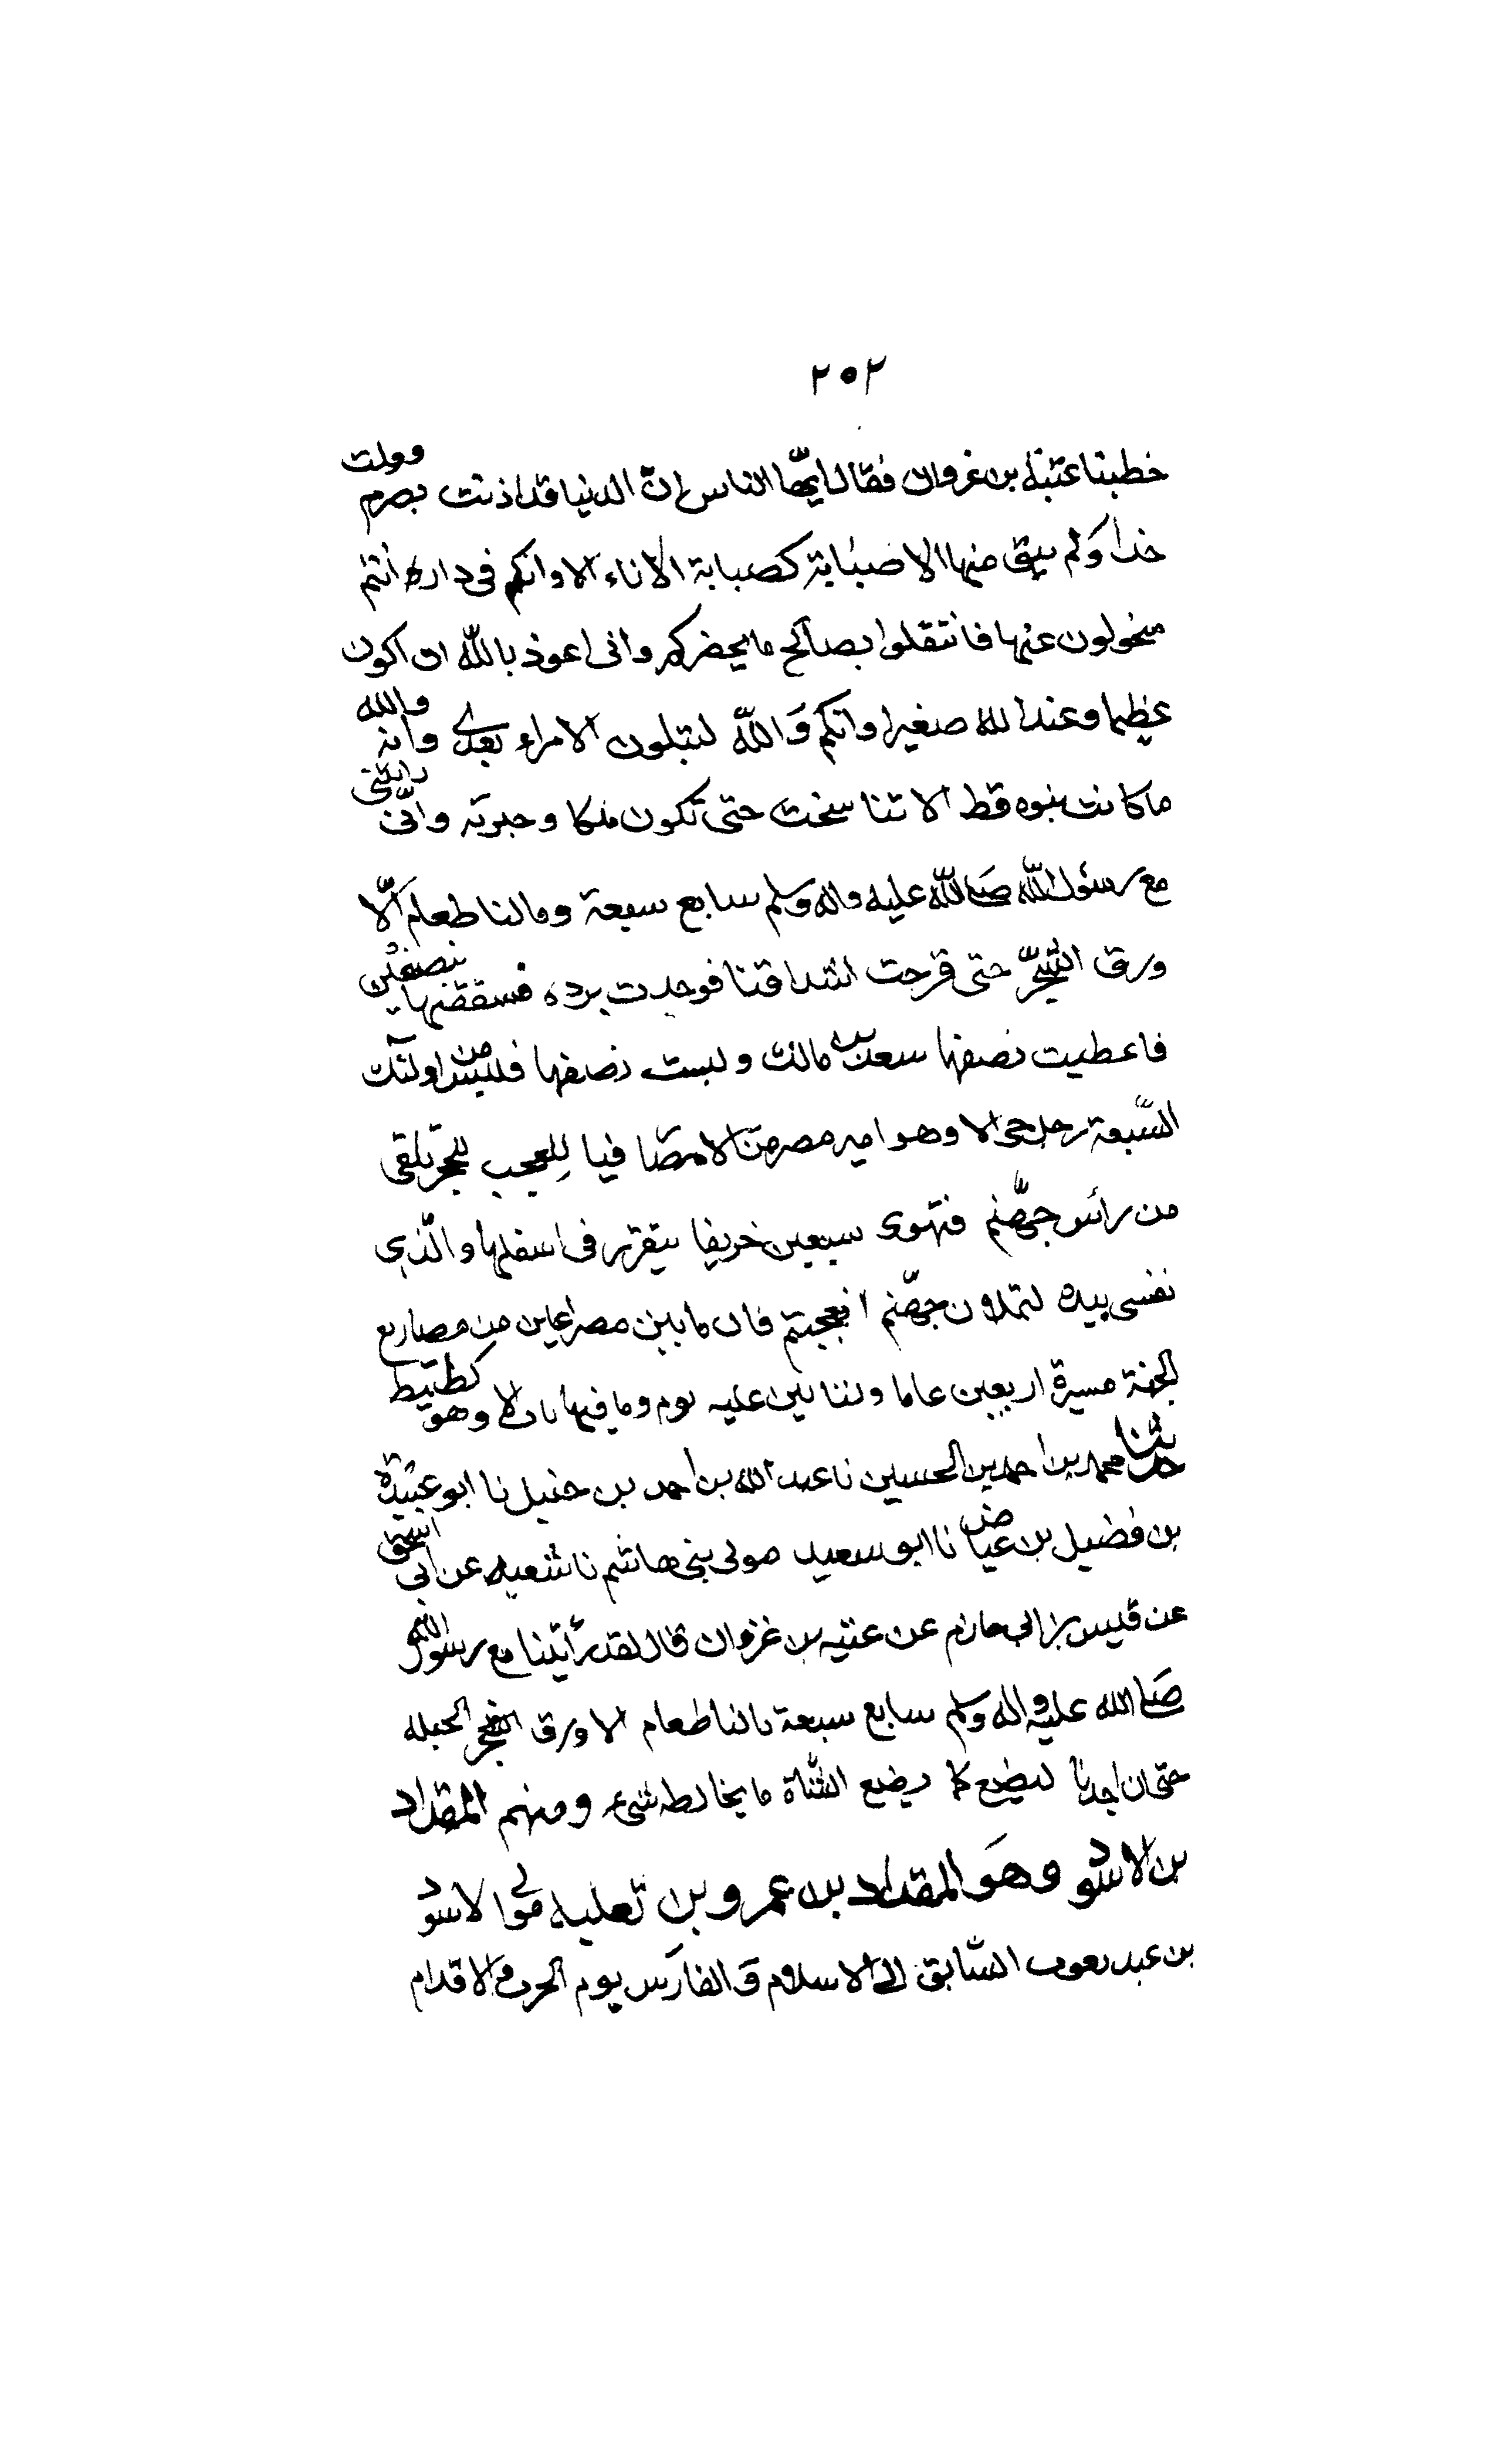 ٢٥٢
خطبنا عتبة بن غزوان فقال ايّها الناس انّ الدنيا قد اذنت بصرم وولت
خذا ولم يبق منها الا صبابة كصبابة الاناء الا وانكم فى دار انتم
متحولون عنها فانتقلوا بصالح ما يحضركم وانى اعوذ بالله ان اكون
عظيما وعند الله صغيرا وانكم والله لتبلون الامراء بعدي وانه والله
ما كانت نبوه قط الا تناسخت حتى تكون ملكا وجبرية وانّى رايتنى
مع رسول الله صلى الله عليه واله وسلم سابع سبعة وما لنا طعام الّا
ورق الشجر حتى قرحت اشداقنا فوجدت برده فشققتها بنصفين
فاعطيت نصفها سعد بن مالك ولبست نصفها فليس من اولئك
السّبعة رجل حى الا وهو امير مصر من الامصار فيا للعجب للحجر يلقى
من رأس جهّنم فتهوى سبعين خريفا يتقرر فى اسفلها والّذي
نفسى بيده لتملاون جهّنم افعجبتم فان ما بين مصراعين من مصاريع
الجنة مسيرة اربعين عاما ولياتين عليه يوم وما فيها باب الا وهو كظيظ
حدثنا محمد بن احمد بن الحسين نا عبد الله بن احمد بن حنبل نا ابو عبيدة
بن فضيل بن عياض نا ابو سعيد مولى بنى هاشم نا شعبه عن ابى اسحق
عن قيس بن ابى حازم عن عتبه بن غزوان قال لقد رأيتنا مع رسول الله
صلى الله عليه واله وسلم سابع سبعة ما لنا طعام الا ورق الشجر الحبله
حتى ان احدنا ليضع كما يضع الشاة ما يخالطه شىء ومنهم المقداد
بن الاسود وهو المقداد بن عمرو بن ثعلبه مولى الاسود
بن عبد يغوث السّابق الى الاسلام والفارس يوم الحرب والاقدام